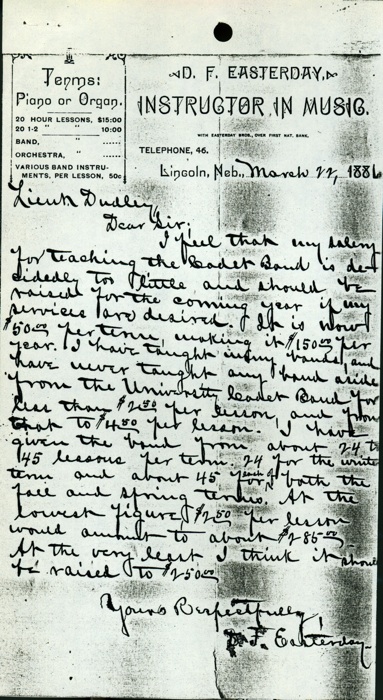 Terms:
Piano or Organ.
20 HOUR LESSONS, $15:00
20 1-2 " " 10:00
BAND, " ......
ORCHESTRA, " ......
VARIOUS BAND INSTRU-
MENTS, PER LESSON, 50c
D. F. EASTERDAY,
INSTRUCTOR IN MUSIC.
WITH EASTERDAY BROS., OVER FIRST NAT. BANK.
TELEPHONE, 46.
Lincoln, Neb., March 22, 1886
Lieut Dudley,
Dear Sir;
I feel that my salary
for teaching the Cadet Band is de-
cidedly to little and should be
raised for the coming year if my
services are desired. It is now
$50.00 per term, making it $150.00 per
year. I have taught many bands, and
have never taught any band aside
from the University Cadet Band for
less than $2.50 per lesson, and from
that to $4.50 per lesson. I have
given the band from about 24 to
45 lessons per term 24 for the winter
term and about 45 each for both the
fall and spring terms. At the
lowest figure $2.50 per lesson
would amount to about $285.00
At the very least I think it should
be raised to $250.00
Yours Respectfully,
D. F. Easterday.